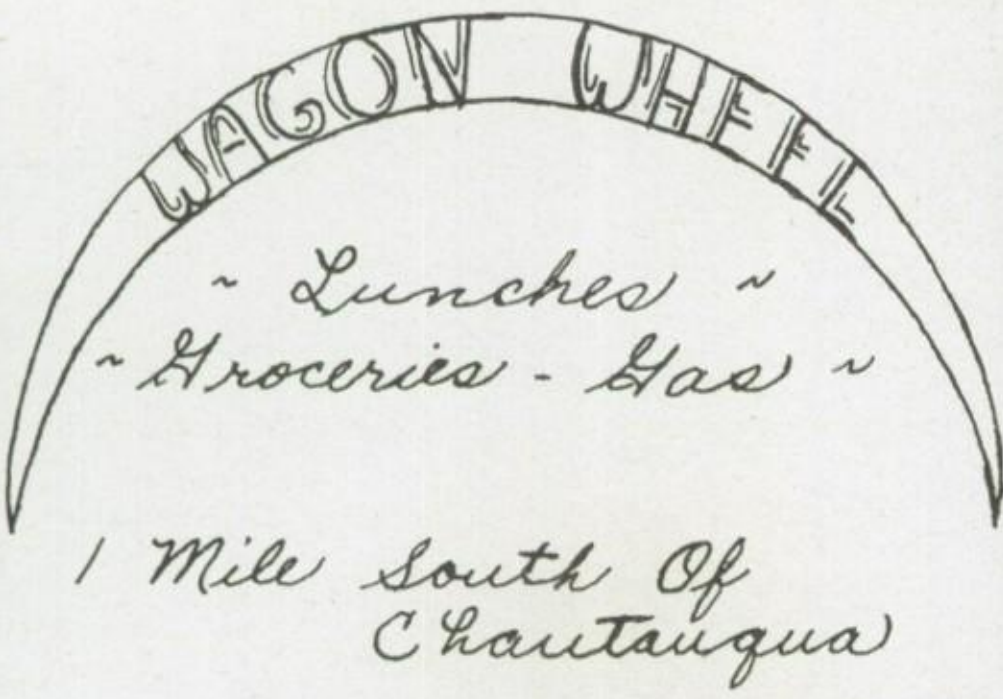 WAGON WHEEL
~ Lunches ~
~ Groceries - Gas ~
1 Mile South Of
Chautauqua